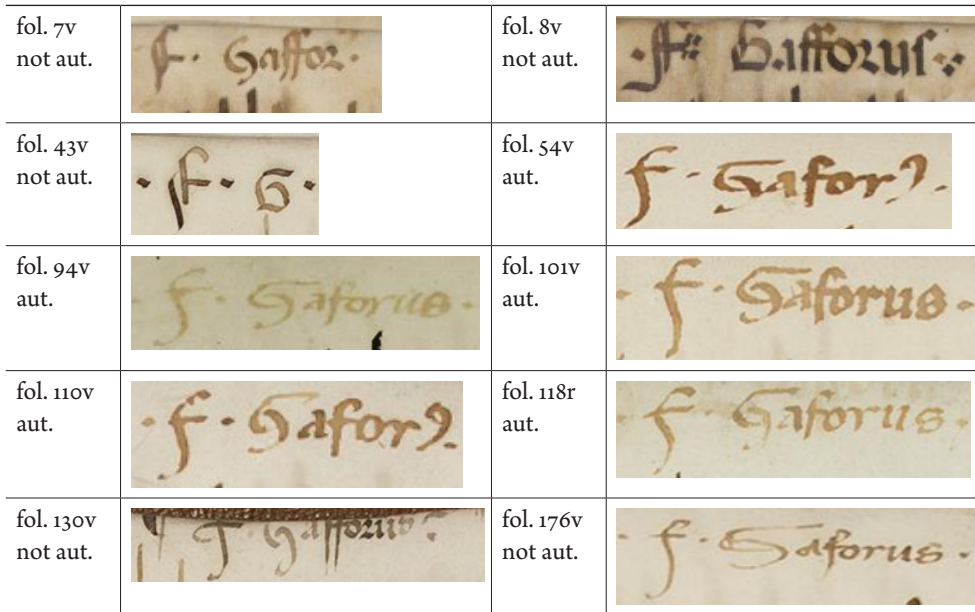 fol. 7v
not aut.
f. Gaffor.
fol. 8v
not aut.
· ff: Gafforus :
fol. 43v
not aut.
· f · G ·
fol. 54v
aut.
f · Gaforꝯ .
fol. 94v
aut.
· f · Gaforus ·
fol. 101v
aut.
· f · Gaforus ·
fol. 110v
aut.
· f · Gaforꝯ .
fol. 118r
aut.
· f · Gaforus ·
fol. 130v
not aut.
f · Gafforus :
fol. 176v
not aut.
· f · Gaforus ·